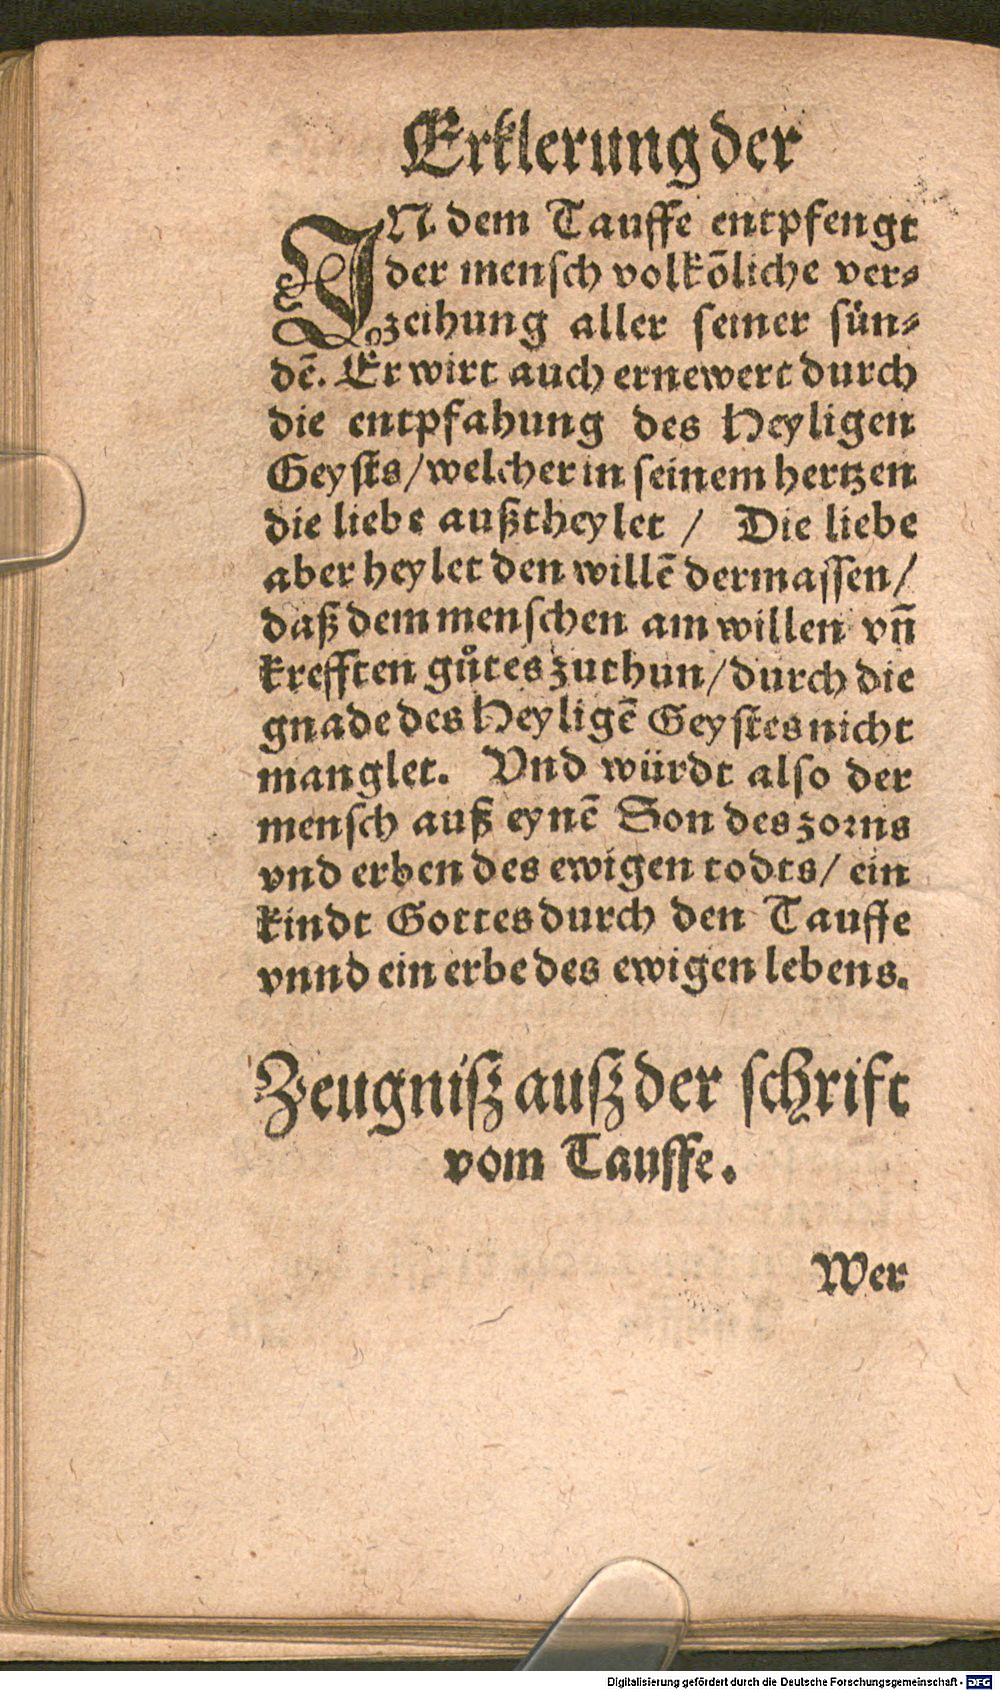 Erklerung der
IN dem Tauffe entpfengt
der mensch volkõliche ver-
zeihung aller seiner sün-
dẽ. Er wirt auch ernewert durch
die entpfahung des Heyligen
Geysts/welcher in seinem hertzen
die liebe außtheylet / Die liebe
aber heylet den willẽ dermassen/
daß dem menschen am willen vñ
krefften gůtes zuthun/durch die
gnade des Heyligẽ Geystes nicht
manglet. Vnd würdt also der
mensch auß eynẽ Son des zorns
vnd erben des ewigen todts/ ein
kindt Gottes durch den Tauffe
vnnd ein erbe des ewigen lebens.
Zeugniß auß der schrift
vom Tauffe.
Wer
Digitalisierung gefördert durch die Deutsche Forschungsgemeinschaft - DFG